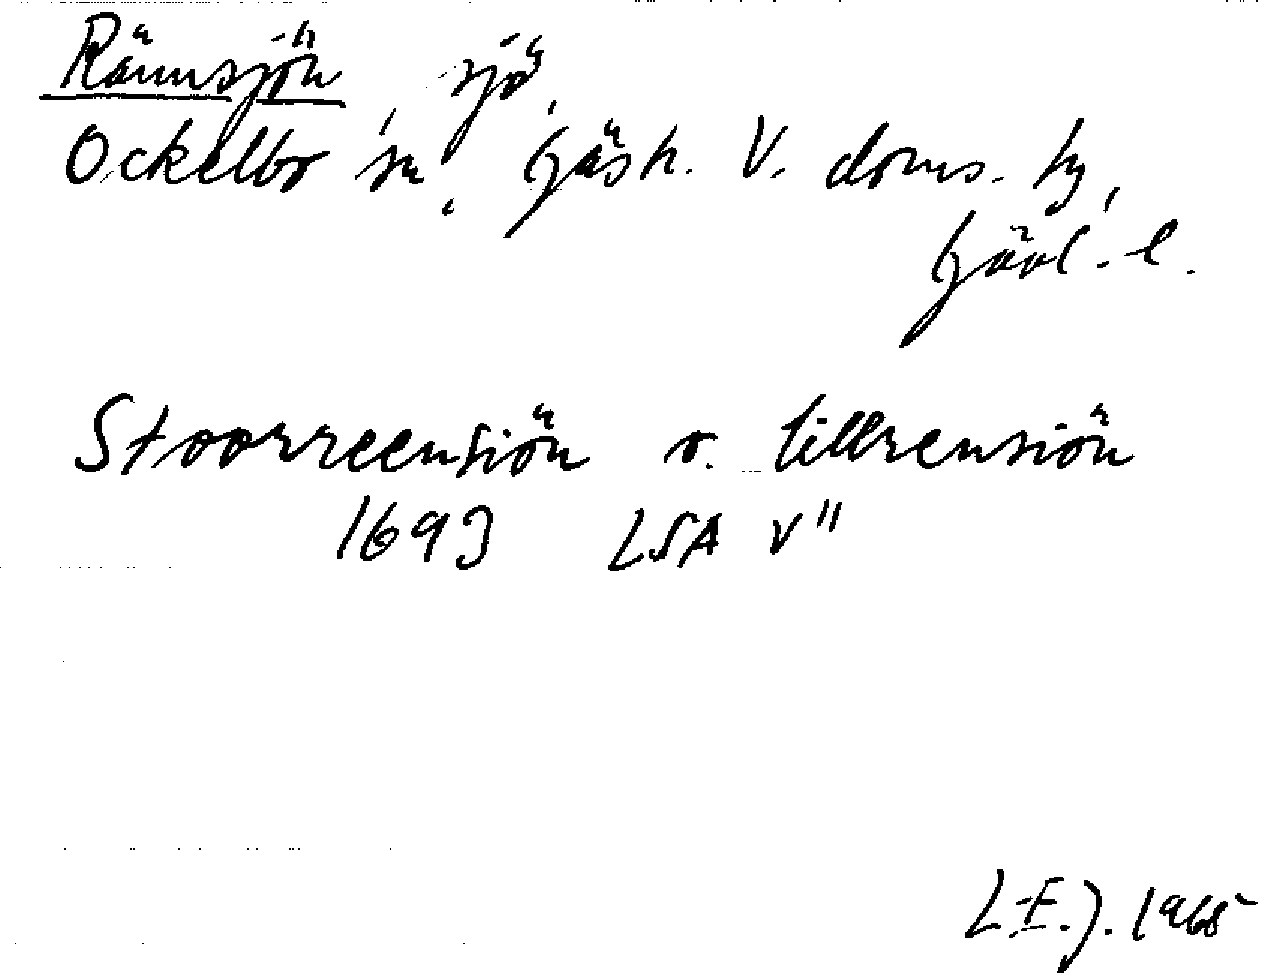 Rännsjön, sjö,
Ockelbo sn, Gästr. V. doms. hg,
Gävl. l.
Stoorreensiön o. lillrensiön
1693 LSA V"
L-E.J. 1965